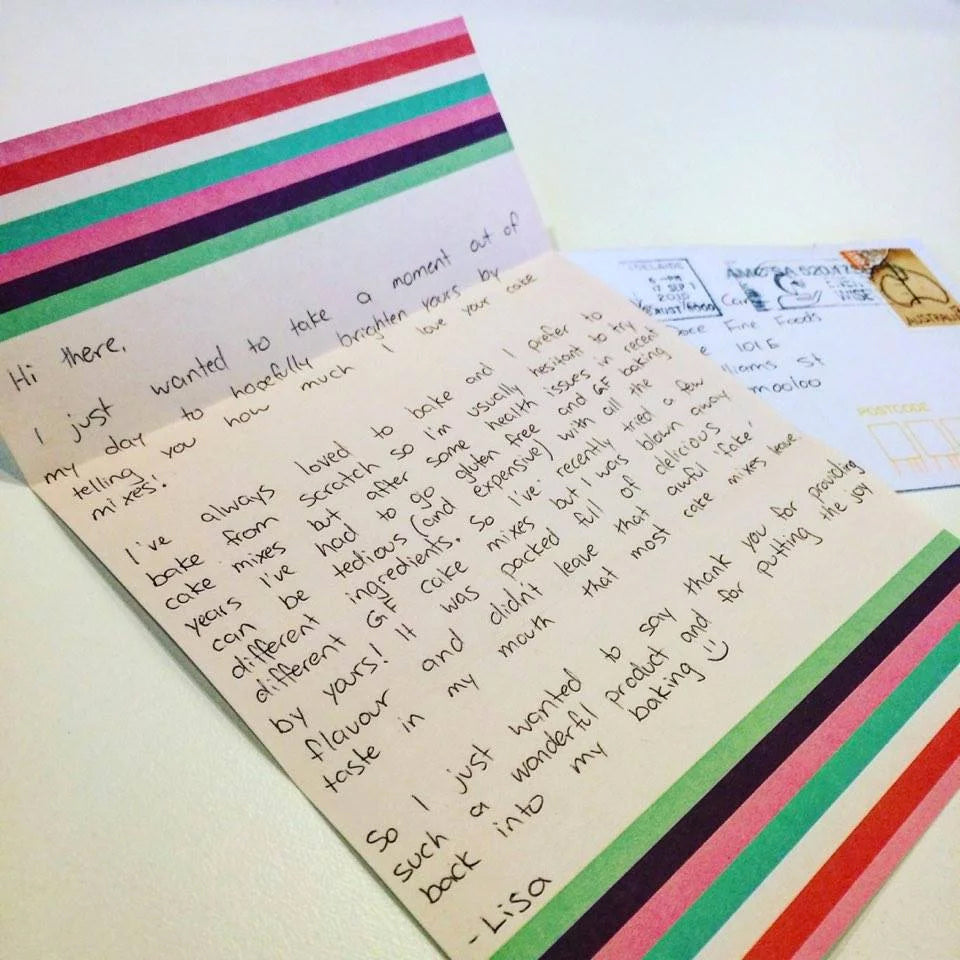 Hi there,
I just wanted to take a moment out of
my day to hopefully brighten yours by
telling you how much I love your cake
mixes!
I've always loved to bake and I prefer to
bake from scratch so I'm usually hesitant to try
cake mixes but after some health issues in recent
years I've had to go gluten free and GF baking
can be tedious (and expensive) with all the
different ingredients. So I've recently tried a few
different GF cake mixes but I was blown away
by yours! It was packed full of delicious
flavour and didn't leave that awful 'fake'
taste in my mouth that most cake mixes leave.
So I just wanted to say thank you for providing
such a wonderful product and for putting the joy
back into my baking
- Lisa
ADELAIDE
6-PM
17 SEP
2015
AUST/5000
Fine Foods
101 E
lliams St
mooloo
AUSTRALIA
POSTCODE